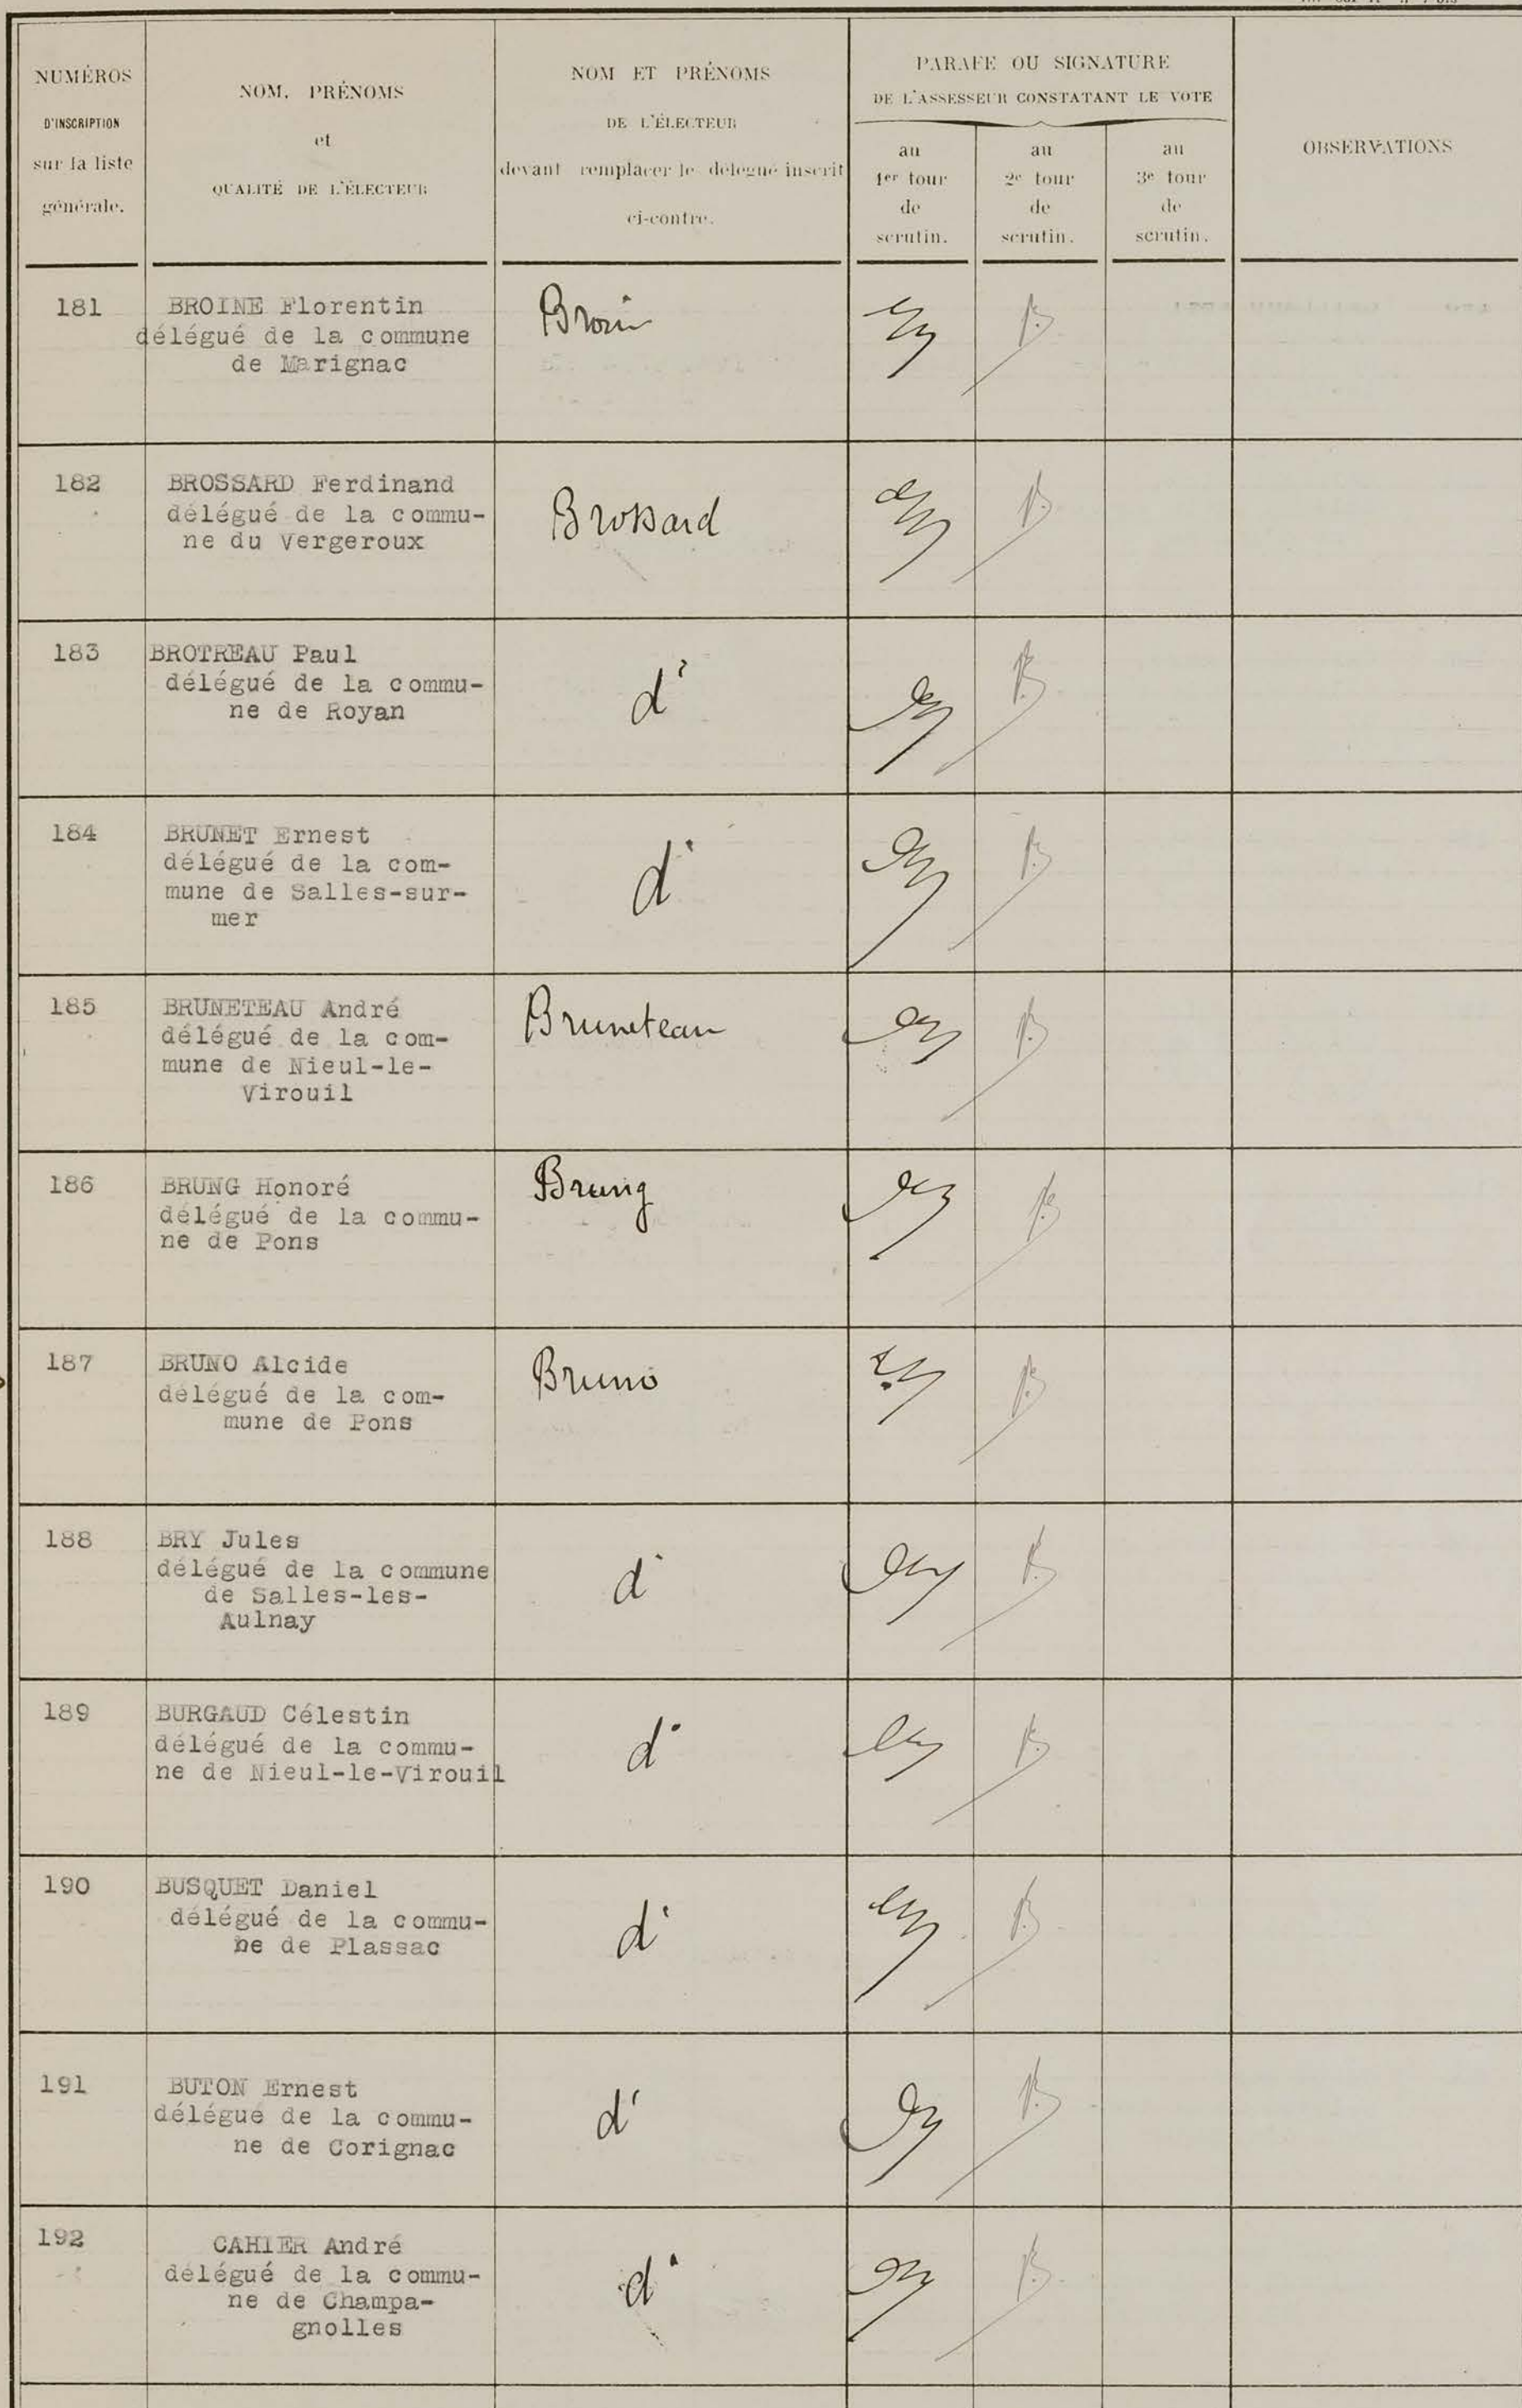 NUMÉROS
D'INSCRIPTION
sur la liste
générale.
NOM, PRÉNOMS
et
QUALITÉ DE L'ÉLECTEUR
NOM ET PRÉNOMS
DE L'ÉLECTEUR
devant remplacer le délégué inscrit
ci-contre.
PARAFE OU SIGNATURE
DE L'ASSESSEUR CONSTATANT LE VOTE
au
1er tour
de
scrutin.
au
2e tour
de
scrutin.
au
3e tour
de
scrutin.
OBSERVATIONS
181
BROINE Florentin
délégué de la commune
de Marignac
182
BROSSARD Ferdinand
délégué de la commu-
ne du Vergeroux
Brossard
183
BROTREAU Paul
délégué de la commu-
ne de Royan
d°
184
BRUNET Ernest
délégué de la com-
mune de Salles-sur-
mer
d°
185
BRUNETEAU André
délégué de la com-
mune de Nieul-le-
Virouil
Bruneteau
186
BRUNG Honoré
délégué de la commu-
ne de Pons
Brung
187
BRUNO Alcide
délégué de la com-
mune de Pons
Bruno
188
BRY Jules
délégué de la commune
de Salles-les-
Aulnay
d°
189
BURGAUD Célestin
délégué de la commu-
ne de Nieul-le-Virouil
d°
190
BUSQUET Daniel
délégué de la commu-
ne de Plassac
d°
191
BUTON Ernest
délégué de la commu-
ne de Corignac
d°
192
CAHIER André
délégué de la commu-
ne de Champa-
gnolles
d°